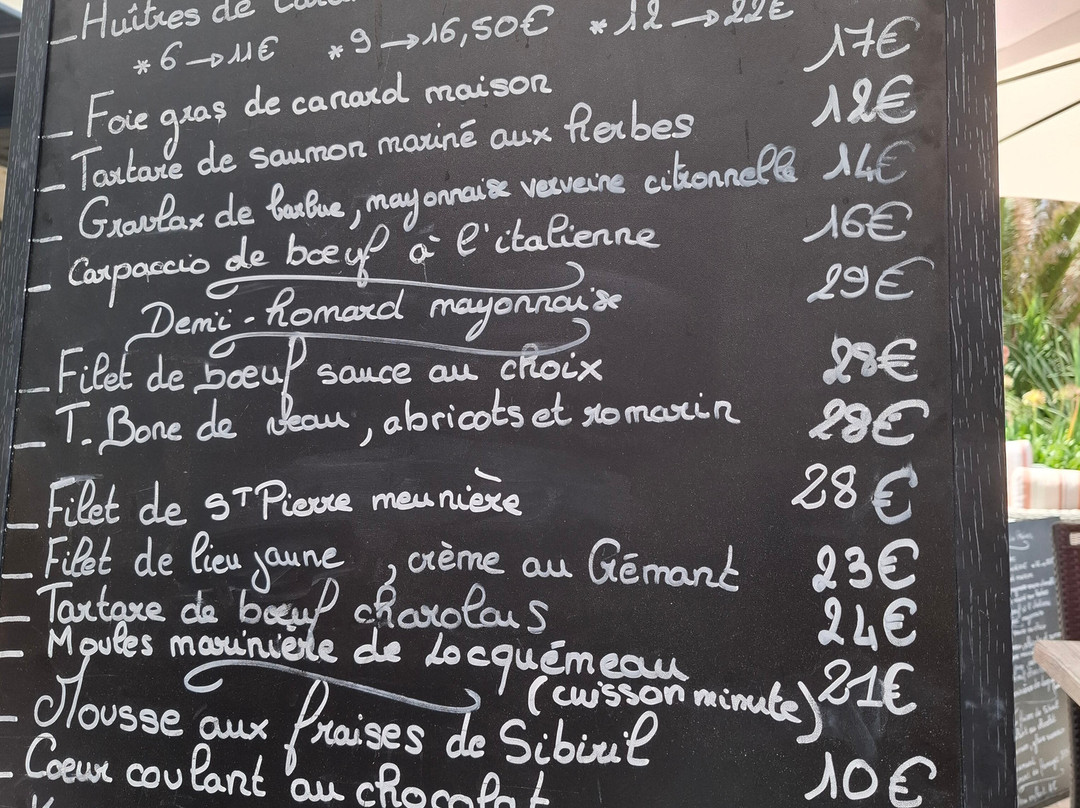 _ Huîtres de
* 6 → 11€ * 9 → 16,50€ * 12 → 22€
_ Foie gras de canard maison 17€
_ Tartare de saumon mariné aux herbes 12€
_ Gravlax de barbue, mayonnaise verveine citronnelle 14€
_ Carpaccio de bœuf à l'italienne 16€
Demi-homard mayonnaise 29€
_ Filet de bœuf sauce au choix 28€
_ T-Bone de veau, abricots et romarin 28€
_ Filet de ST Pierre meunière 28€
_ Filet de lieu jaune, crème au Crémant 23€
_ Tartare de bœuf charolais 24€
_ Moules marinière de Locquémeau 21€
(cuisson minute)
_ Mousse aux fraises de Sibiril
_ Coeur coulant au chocolat 10€